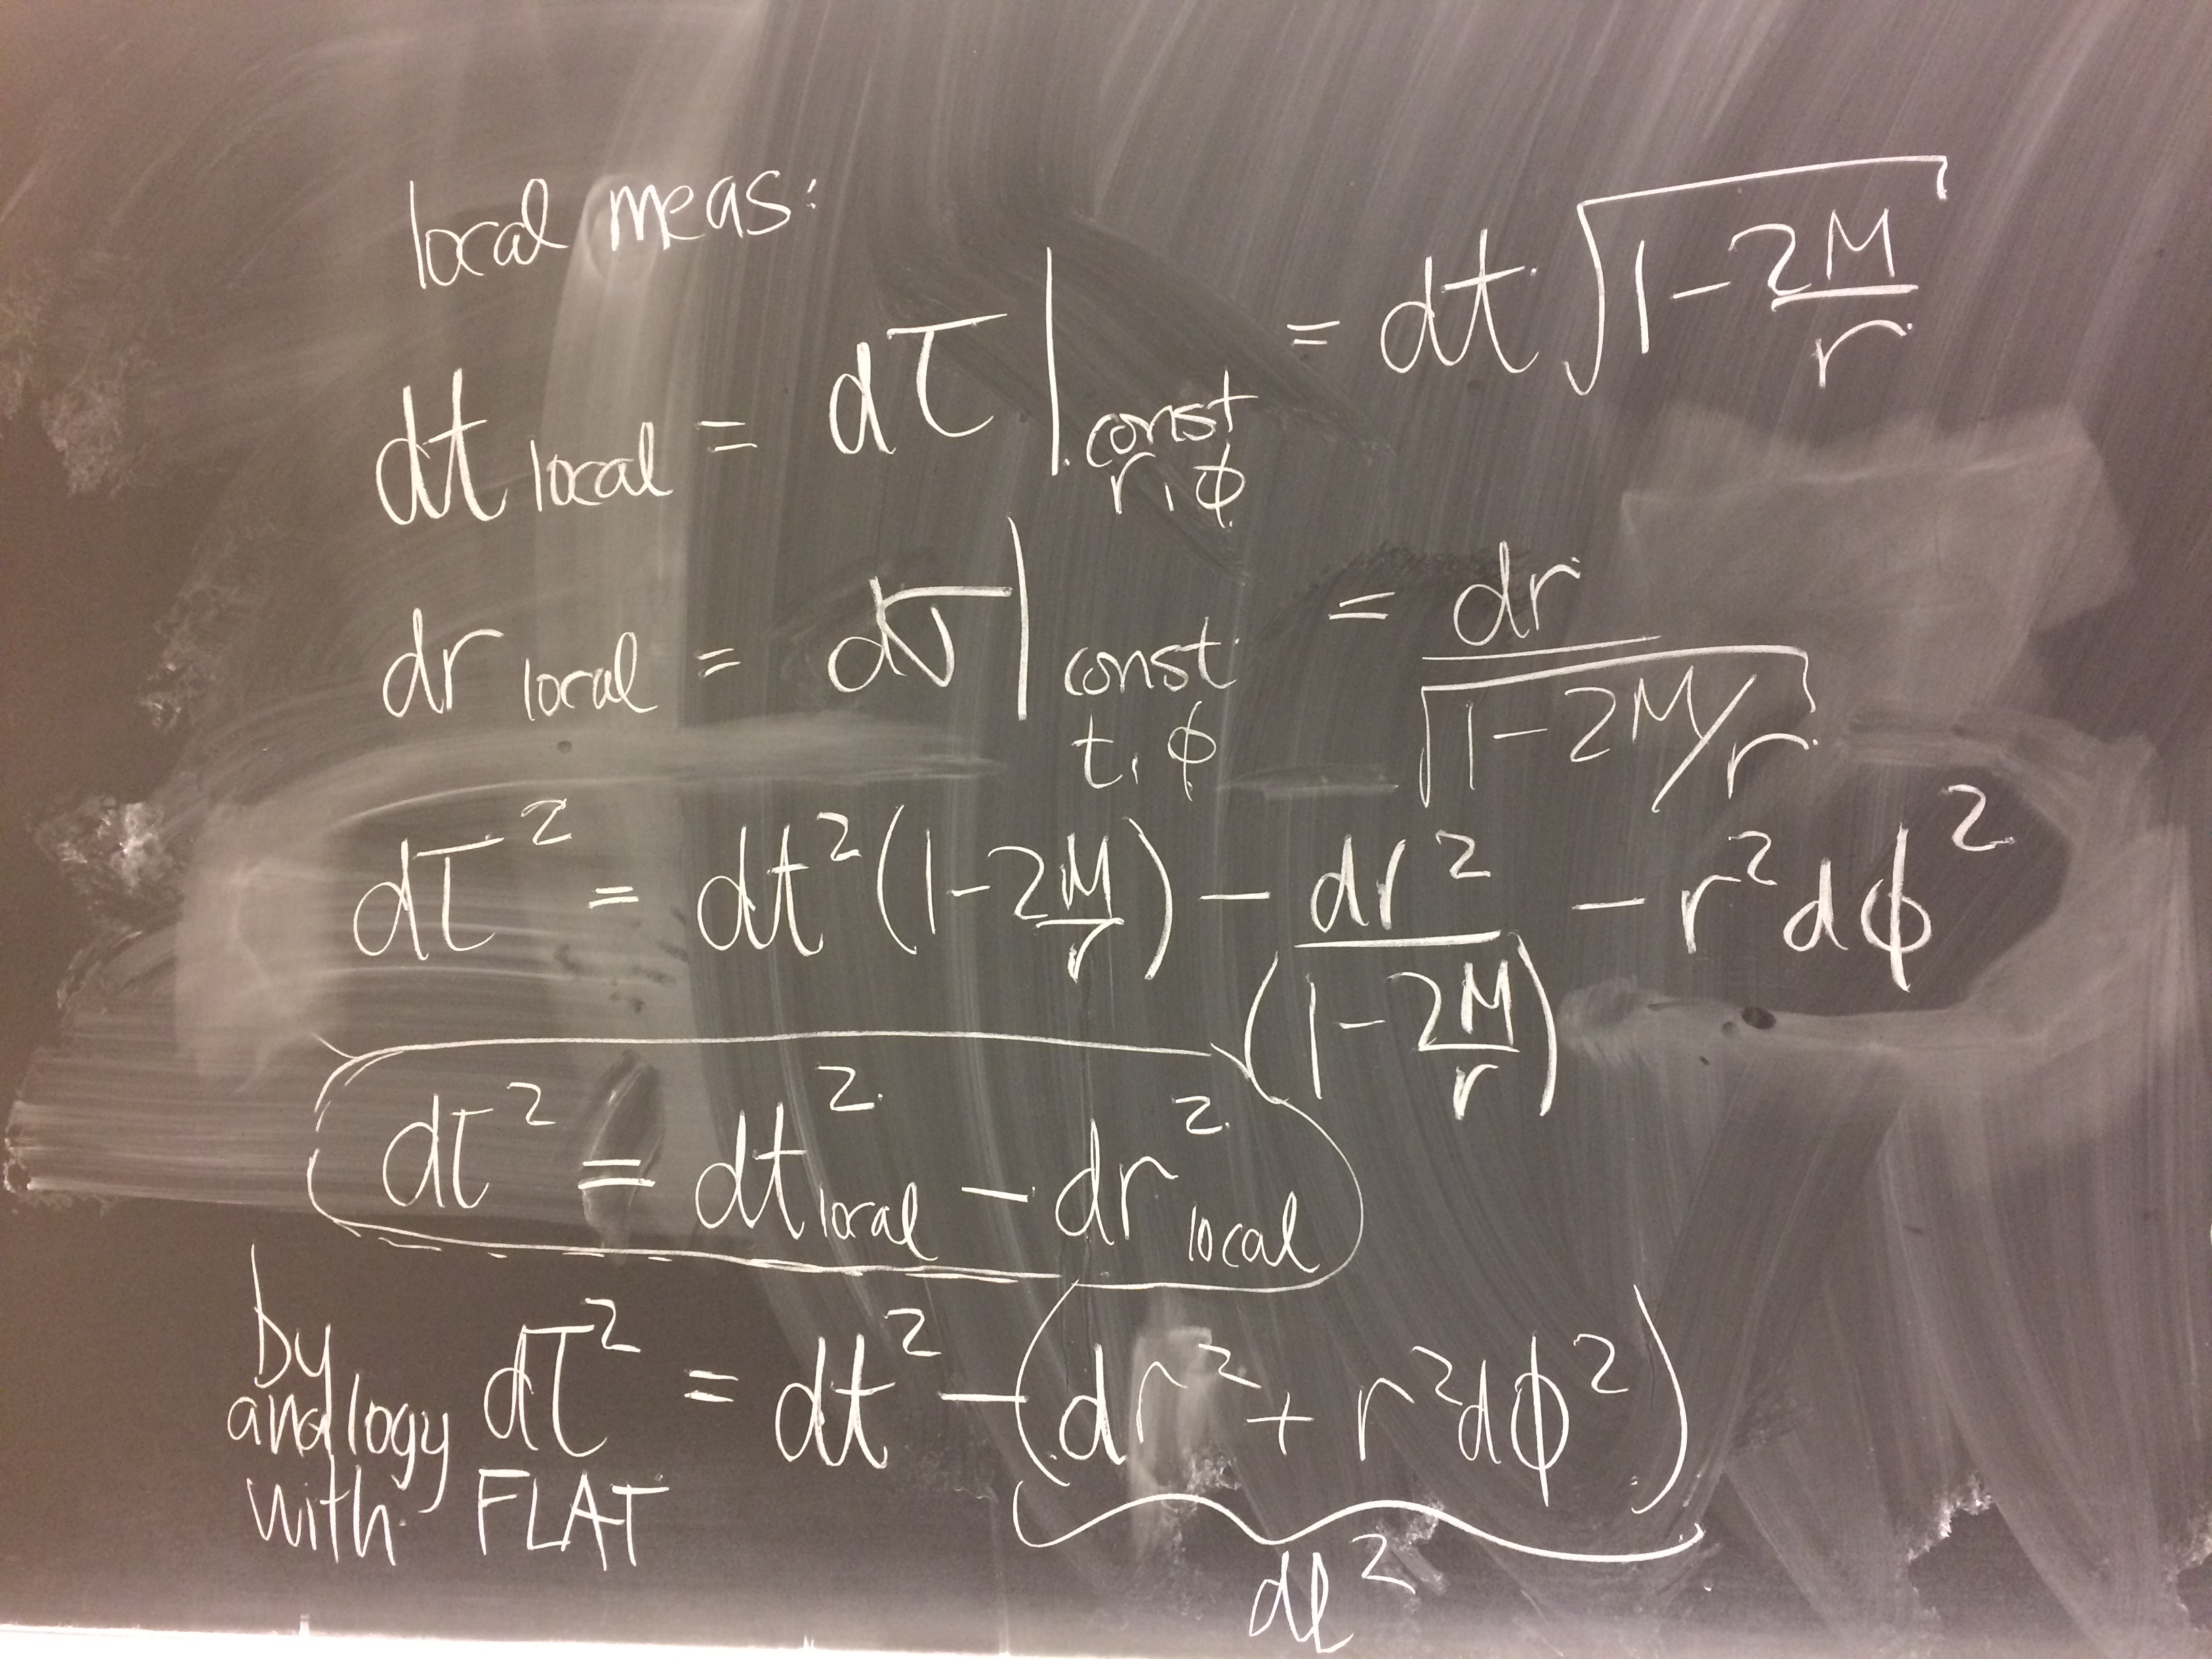 local meas:
dt local = dτ | const r, φ = dt √(1 - 2M/r)
dr local = dσ | const t, φ = dr / √(1 - 2M/r)
dτ² = dt² (1 - 2M/r) - dr² / (1 - 2M/r) - r² dφ²
dτ² = dt² local - dr² local
by analogy with FLAT dτ² = dt² - (dr² + r² dφ²)
dl²